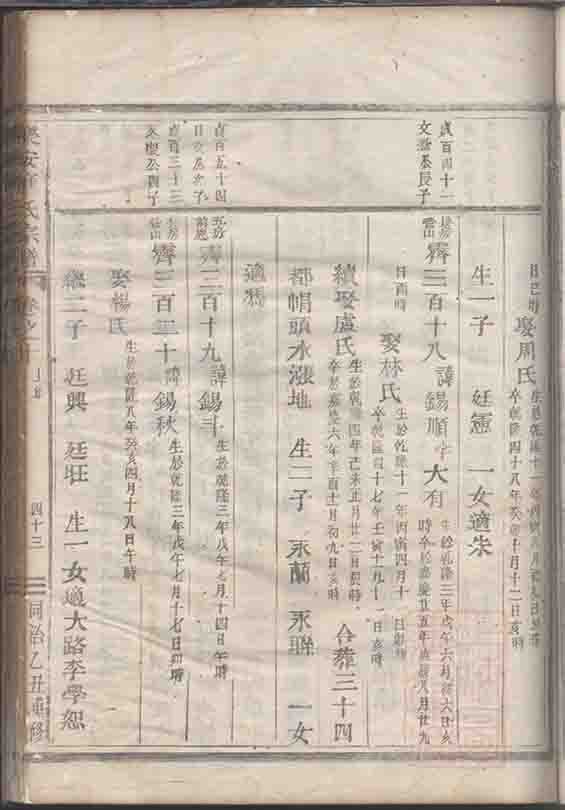 日巳時 娶周氏 生於乾隆十一年丙寅八月初九日
卒乾隆四十八年癸卯十月十二日亥時
生一子 廷憲 一女適朱
貞百四十一
文 長子
霽三百十八 諱錫順 字大有 生於乾隆三年戊午六月初六日亥
時卒於嘉慶廿五年庚辰八月廿九
日酉時 娶林氏 生於乾隆十一年丙寅四月十一日
卒乾隆四十七年壬寅十一月十一日亥時
續娶盧氏 生於乾隆四年己未正月廿二日辰時
卒於嘉慶六年辛酉十一月初九日亥時 合葬三十四
都帽頭水漲地 生二子 永蘭 永聯 一女
適馮
貞百五十四
日 次子
霽三百十九 諱錫斗 生於乾隆三年戊午七月十四日午時
貞百三十三
公四子
霽三百二十 諱錫秋 生於乾隆三年戊午七月十七日卯時
娶楊氏 生於乾隆八年癸亥四月十八日午時
繼二子 廷興 廷旺 生一女適大路李學恕
安 氏宗譜 卷之 四十三 同治乙丑重修